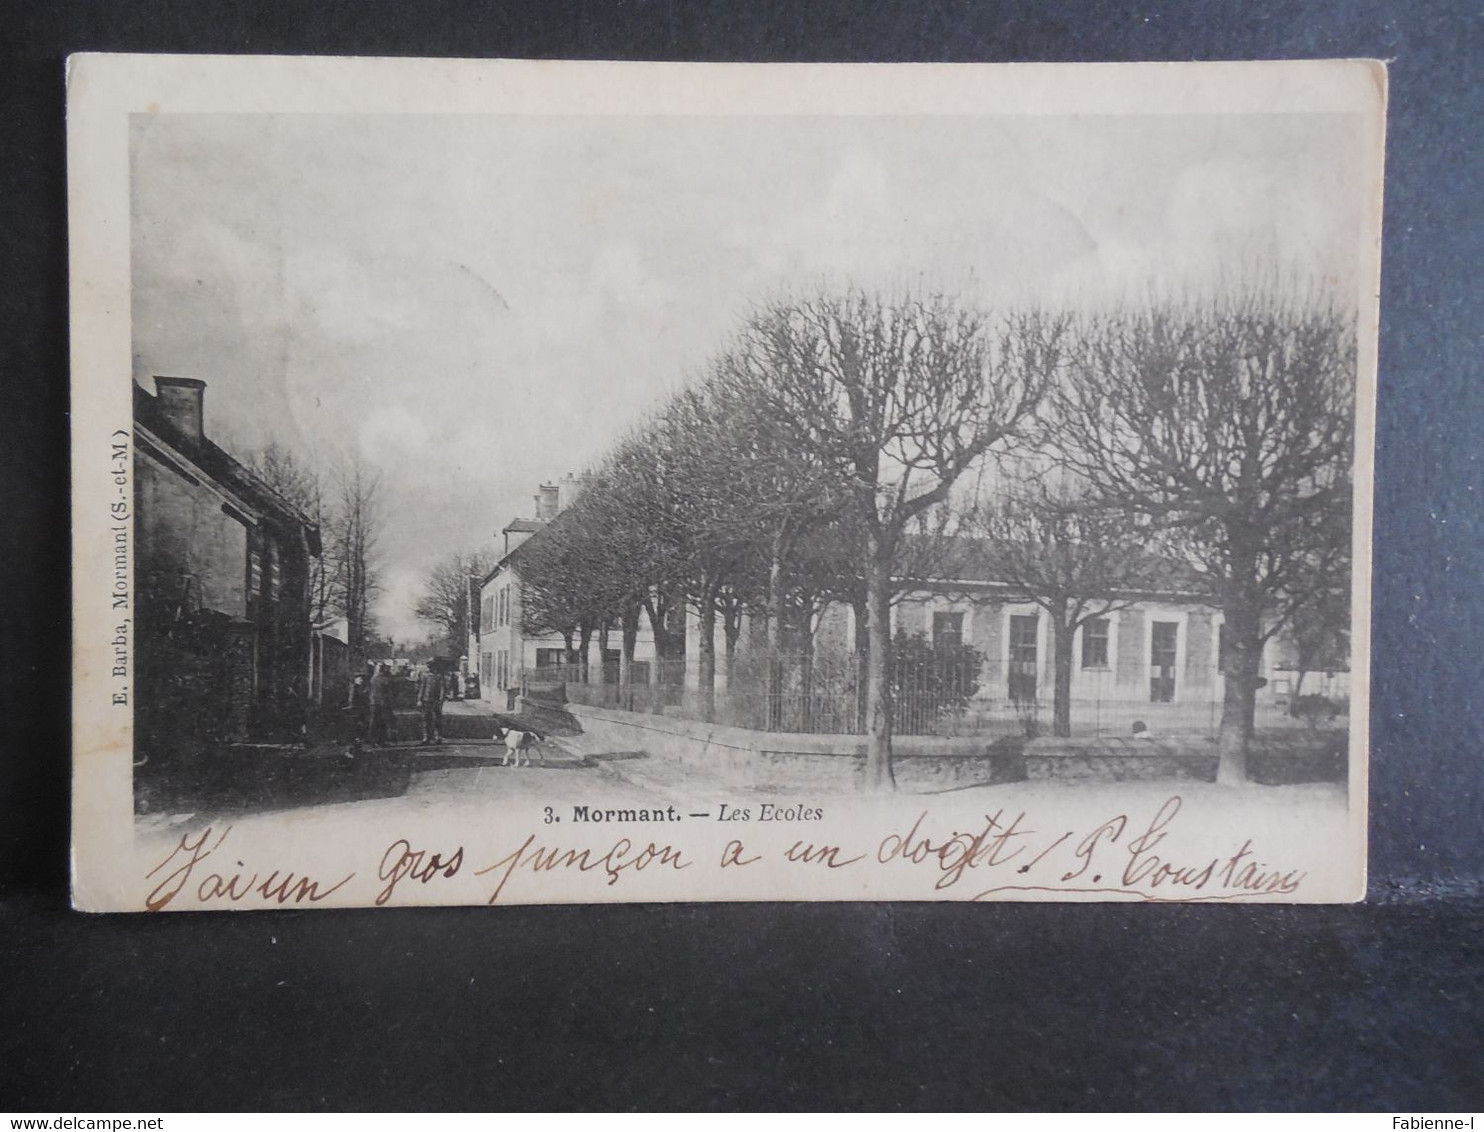 E. Barba, Mormant (S.-et-M)
3. Mormant. — Les Ecoles
J'ai un gros funçon a un doigt. / P. Coustain
www.delcampe.net
Fabienne-l